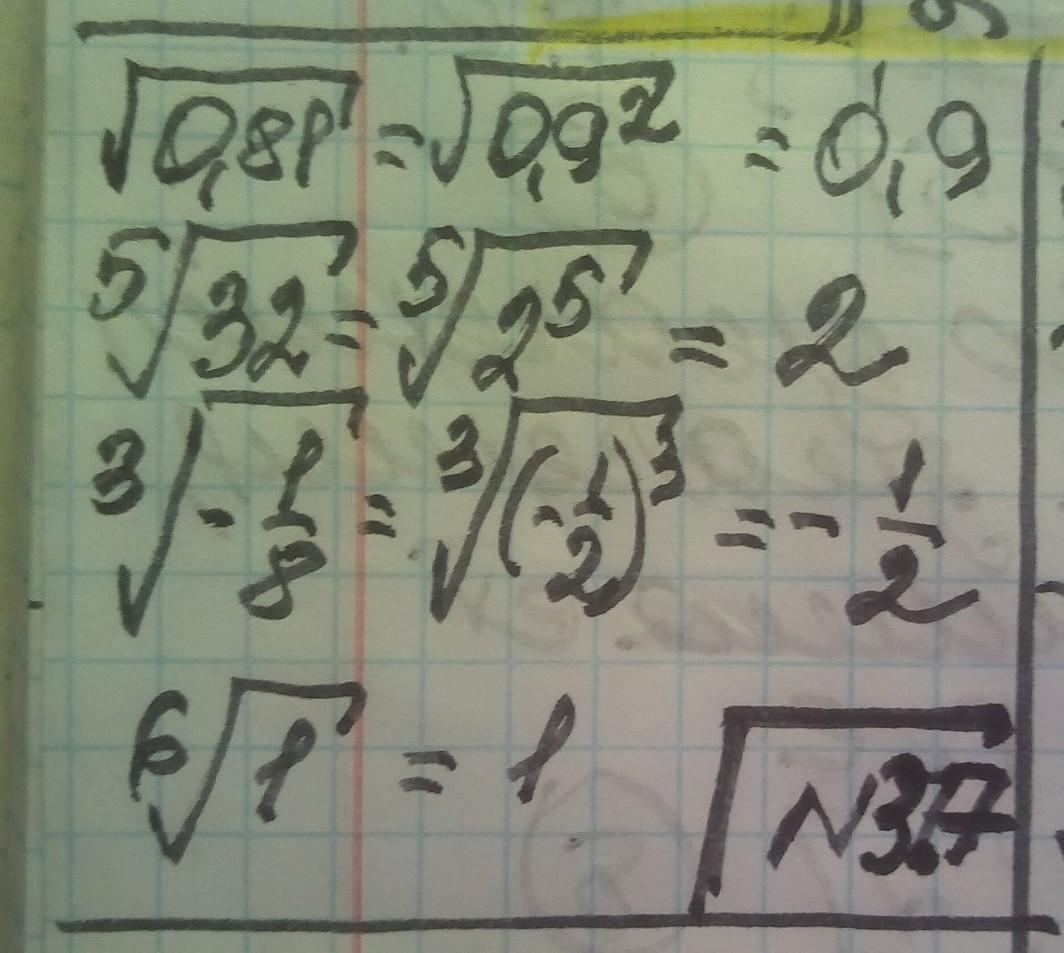 √0,81 = √0,9² = 0,9
⁵√32 = ⁵√2⁵ = 2
³√-1/8 = ³√(-1/2)³ = -1/2
⁶√1 = 1
N3.7